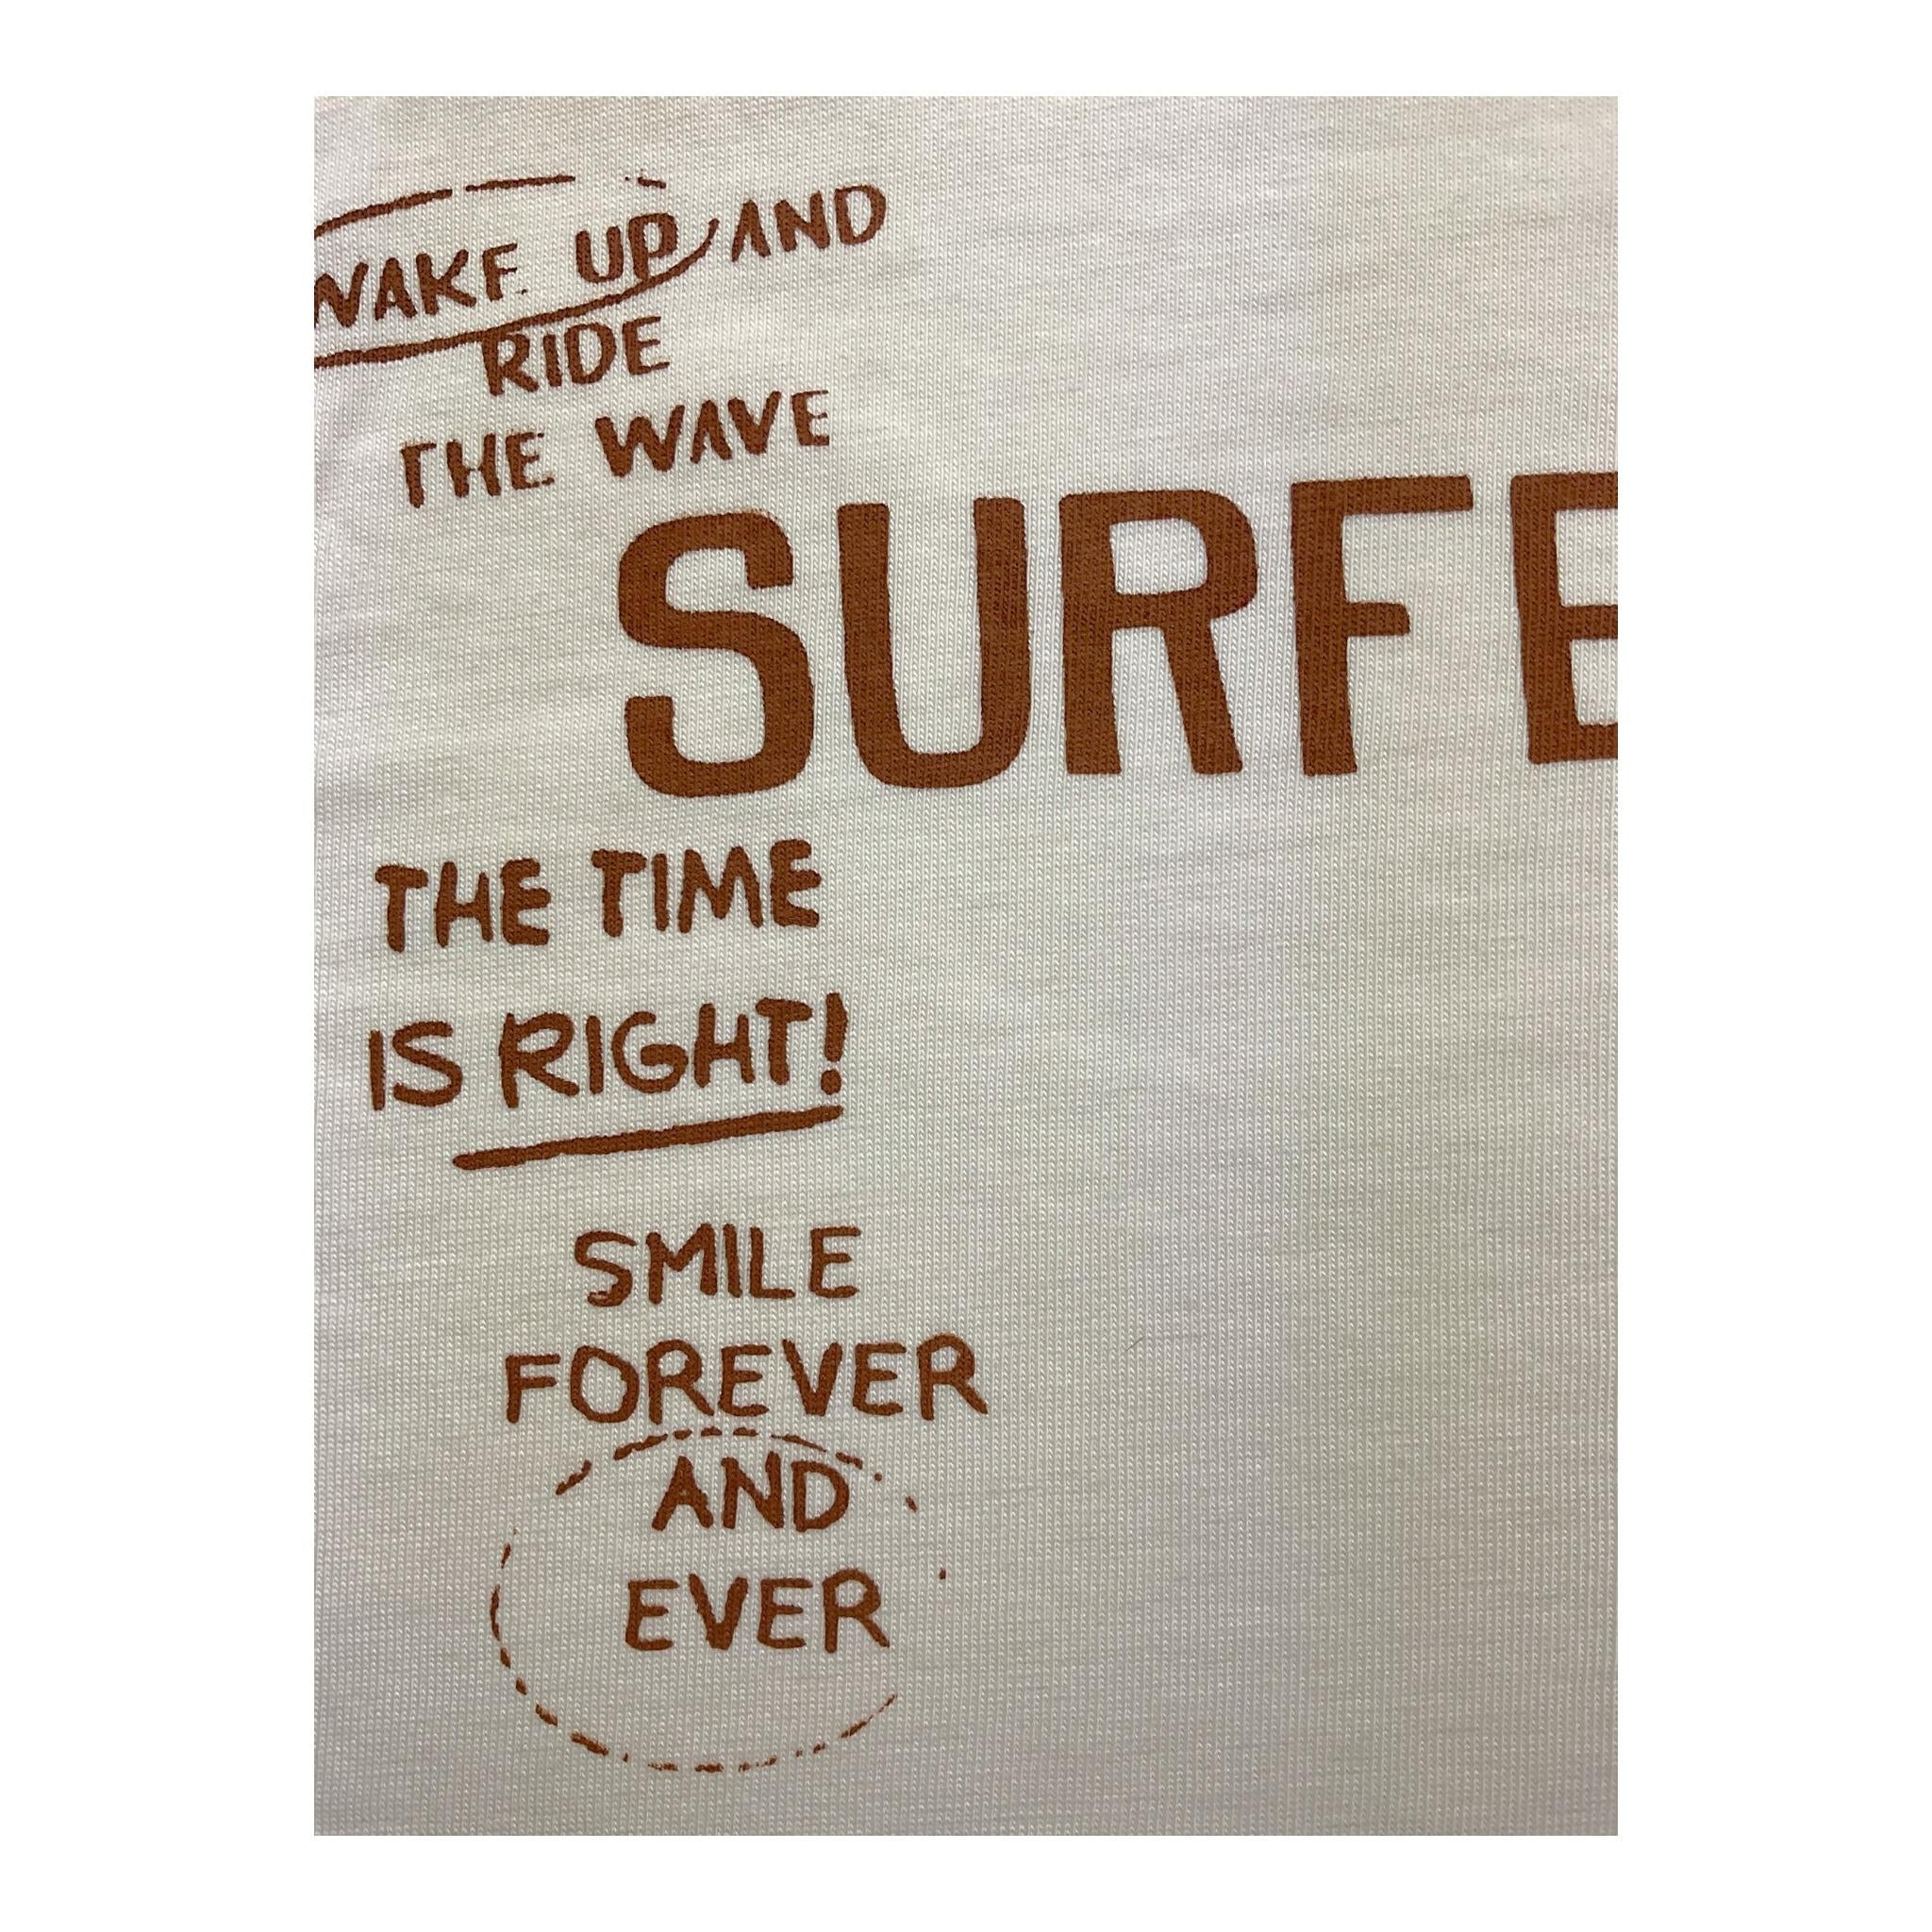 WAKE UP AND
RIDE
THE WAVE
SURFE
THE TIME
IS RIGHT!
SMILE
FOREVER
AND
EVER